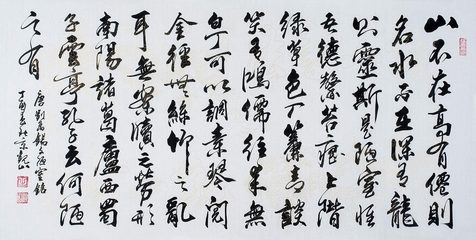 山不在高有僊則
名水不在深有龍
則靈斯是陋室惟
吾德馨苔痕上階
緑草色入簾青談
笑有鴻儒往來無
白丁可以調素琴閱
金經無絲竹之亂
耳無案牘之勞形
南陽諸葛廬西蜀
子雲亭孔子云何陋
之有
唐劉禹錫陋室銘
丁酉春於京